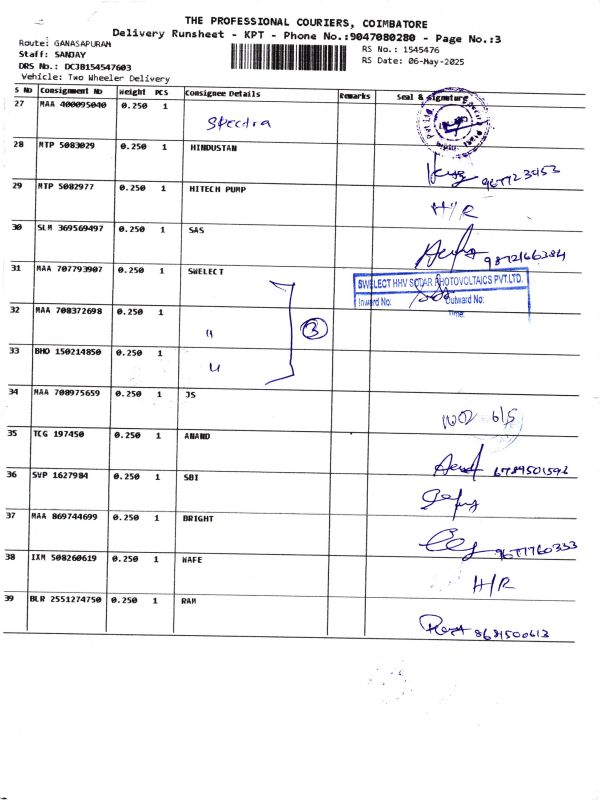 THE PROFESSIONAL COURIERS, COIMBATORE
Delivery Runsheet - KPT - Phone No.:9047080280 - Page No.:3
Route: GANASAPURAM
RS No.: 1545476
Staff: SANJAY
RS Date: 06-May-2025
DRS No.: DCJB154547603
Vehicle: Two Wheeler Delivery
S No Consignment No Weight PCS Consignee Details Remarks Seal & signature
27 MAA 400095040 0.250 1 Spectra
28 MTP 5083029 0.250 1 HINDUSTAN
29 MTP 5082977 0.250 1 HITECH PUMP H/R
30 SLM 369569497 0.250 1 SAS 9872166284
31 MAA 707793907 0.250 1 SWELECT
SWELECT HHV SOLAR PHOTOVOLTAICS PVT.LTD.
Inward No: Outward No:
Time:
32 MAA 708372698 0.250 1 " 3
33 BHO 150214850 0.250 1 "
34 MAA 708975659 0.250 1 JS 6/5
35 TCG 197450 0.250 1 ANAND 6789501592
36 SVP 1627984 0.250 1 SBI
37 MAA 869744699 0.250 1 BRIGHT 9677760333
38 IXM 508260619 0.250 1 WAFE H/R
39 BLR 2551274750 0.250 1 RAM 8681500613